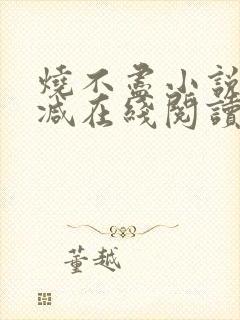 燒不盡小說
減在綫閱讀
董越